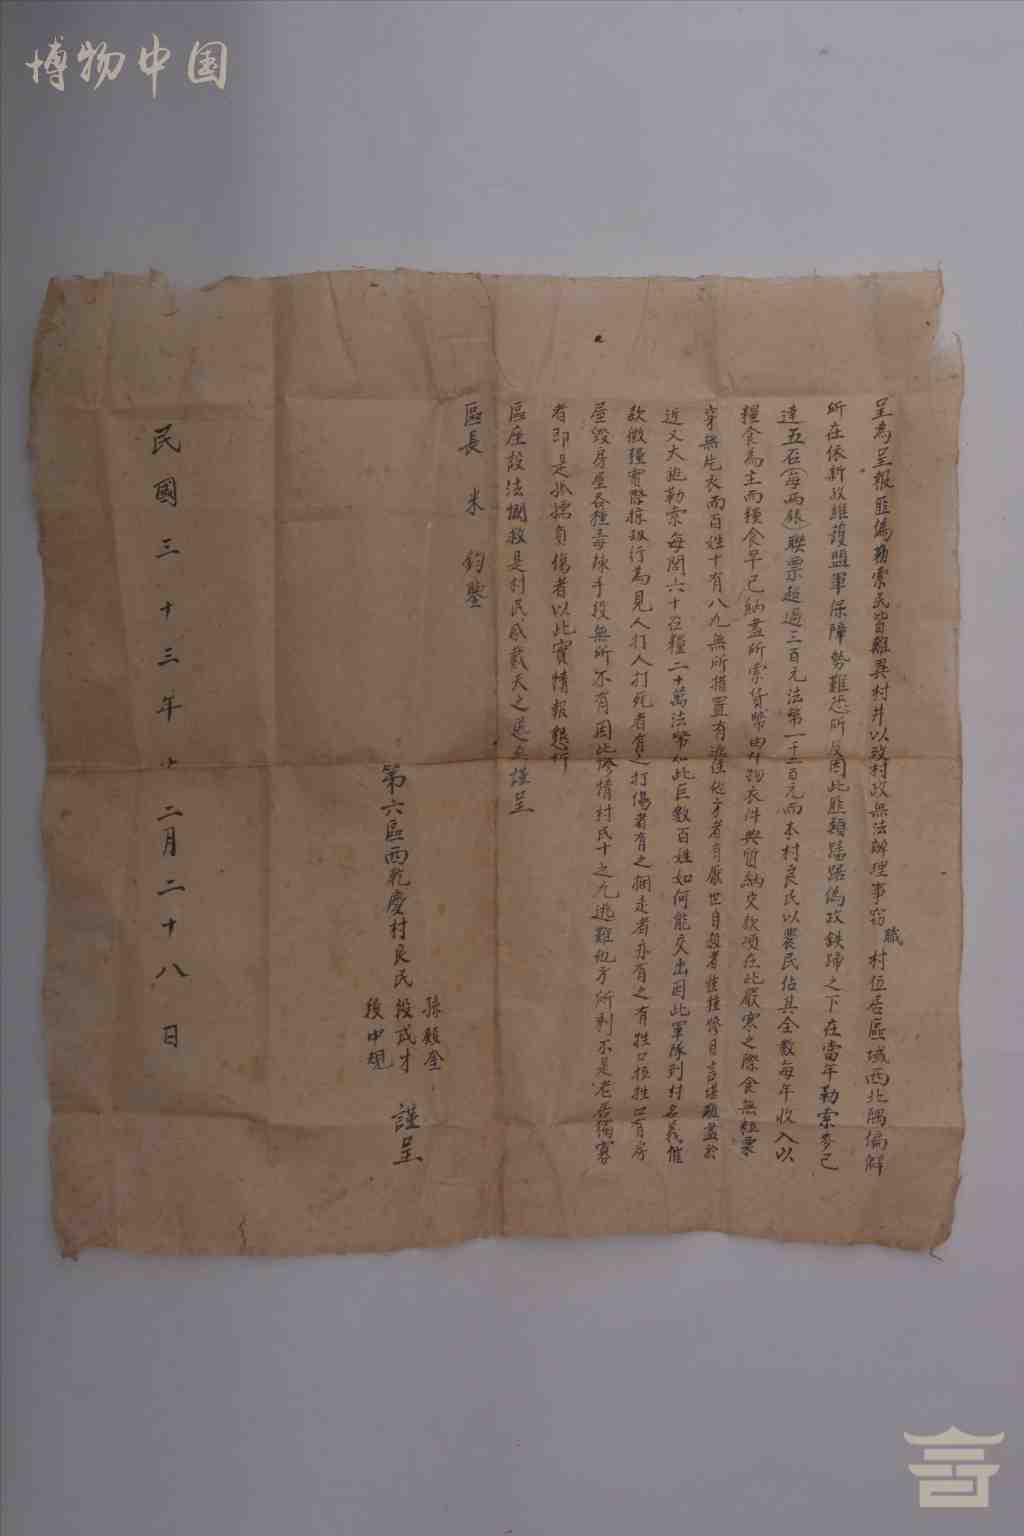 博物中国
呈為呈報匪偽勒索民皆離異村井以致村政無法辦理事窃職村位居區域西北隅偏僻
所在依新政維護盟軍保障勢難恐所及因此匪類蟠踞偽政鉄蹄之下在當年勒索麥已
達五石(每兩銀)聯票超過三百元法幣一千一百元而本村良民以農民佔其全數每年收入以
糧食為主而糧食早已納盡所索貨幣由什物衣件典質納交款項在此嚴寒之際食無粒粟
穿無片衣而百姓十有八九無所措置有逃往他方者有厭世自殺者種種慘目言堪殫盡於
近又大施勒索每閭六十石糧二十萬法幣似此巨數百姓如何能交出因此軍隊到村名義催
款徵糧實際掠取行為見人打人打死者有之打傷者有之捆走者亦有之有牲口拉牲口有房
屋毀房屋各種毒辣手段無所不有因此慘情村民十之九逃難他方所剩不是老者獨寡
者即是孤孀負傷者以此實情報懇祈
區座設法憫救是村民感戴天之
謹呈
區長 米 鈞鑒
第六區西乾慶村良民 孫 段成才 段中 謹呈
民國三十三年十二月二十八日